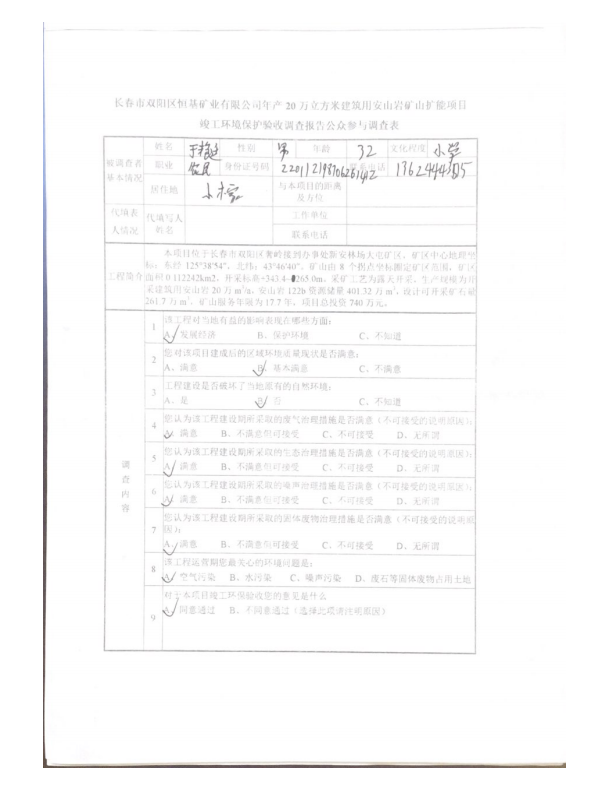 长春市双阳区恒基矿业有限公司年产 20 万立方米建筑用安山岩矿山扩能项目
竣工环境保护验收调查报告公众参与调查表
被调查者
基本情况
姓名 性别 男 年龄 32 文化程度 小学
职业 农民 身份证号码 联系电话
居住地 与本项目的距离
及方位
代填表
人情况
代填写人
姓名
工作单位
联系电话
工程简介
本项目位于长春市双阳区奢岭接到办事处新安林场大屯矿区，矿区中心地理坐
标：东经 125°38′54″，北纬：43°46′40″。矿山由 8 个拐点坐标圈定矿区范围，矿区
面积 0.112242km2，开采标高+343.4- 265.0m，采矿工艺为露天开采，生产规模为开
采建筑用安山岩 20 万 m³/a，安山岩 122b 资源储量 401.32 万 m³，设计可开采矿石量
261.7 万 m³，矿山服务年限为 17.7 年，项目总投资 740 万元。
调查内容
1 该工程对当地有益的影响表现在哪些方面：
A、发展经济 B、保护环境 C、不知道
2 您对该项目建成后的区域环境质量现状是否满意：
A、满意 B、基本满意 C、不满意
3 工程建设是否破坏了当地原有的自然环境：
A、是 B、否 C、不知道
4 您认为该工程建设期所采取的废气治理措施是否满意（不可接受的说明原因）：
A、满意 B、不满意但可接受 C、不可接受 D、无所谓
5 您认为该工程建设期所采取的生态治理措施是否满意（不可接受的说明原因）：
A、满意 B、不满意但可接受 C、不可接受 D、无所谓
6 您认为该工程建设期所采取的噪声治理措施是否满意（不可接受的说明原因）：
A、满意 B、不满意但可接受 C、不可接受 D、无所谓
7 您认为该工程建设期所采取的固体废物治理措施是否满意（不可接受的说明原
因）：
A、满意 B、不满意但可接受 C、不可接受 D、无所谓
8 该工程运营期您最关心的环境问题是：
A、空气污染 B、水污染 C、噪声污染 D、废石等固体废物占用土地
9 对于本项目竣工环保验收您的意见是什么
A、同意通过 B、不同意通过（选择此项请注明原因）